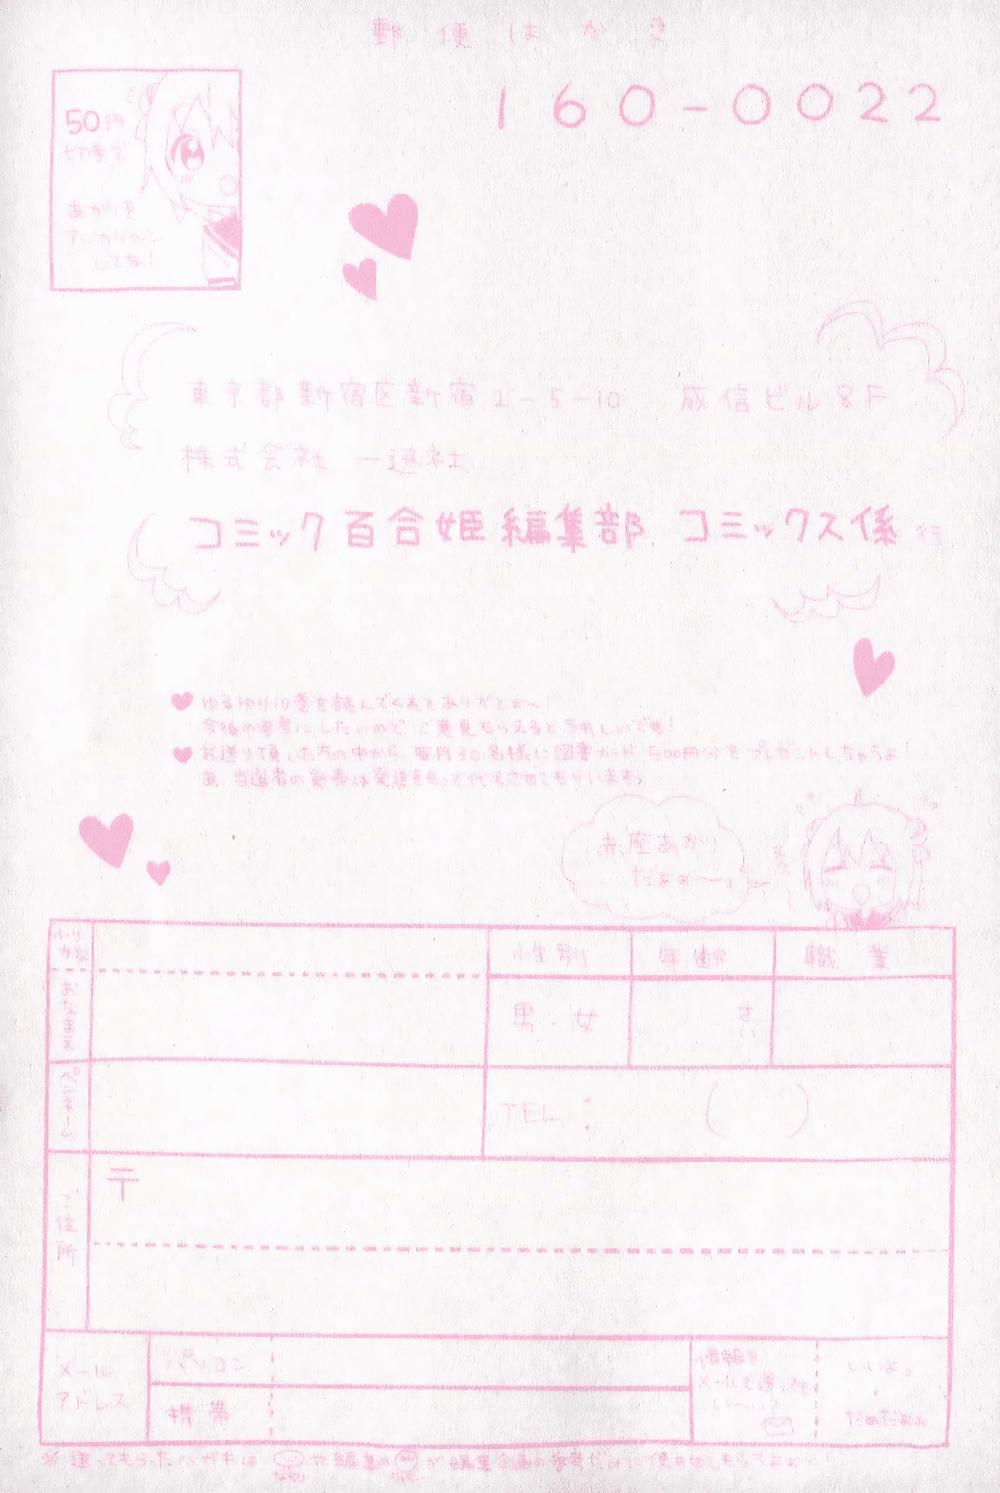 郵便はがき
160-0022
50円
切手て
あかりを
アッカリ〜ン
してね!
東京都新宿区新宿2-5-10 成信ビル8F
株式会社 一迅社
コミック百合姫編集部 コミックス係 行
♥ゆるゆり10巻を読んでくれてありがとぉ〜!
今後の参考にしたいので、ご意見もらえるとうれしいです!
♥お送り頂いた方の中から、毎月30名様に図書カード500円分をプレゼントしちゃうよ!
あ、当選者の発表は発送をもって代えさせてもらいます。
赤座あかり
だよぉ〜っ
ふりがな
性別 年齢 職業
おなまえ
男・女 さい
ペンネーム
TEL: ( )
ご住所
〒
メールアドレス
パソコン
携帯
情報を
メールで送っても
い〜い?
いいよっ
・
だめだよぉ
※送ってもらったハガキは や編集の が編集企画の参考だけに使わせてもらうよぉ〜